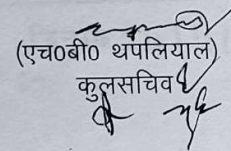 (एच0बी0 थपलियाल)
कुलसचिव